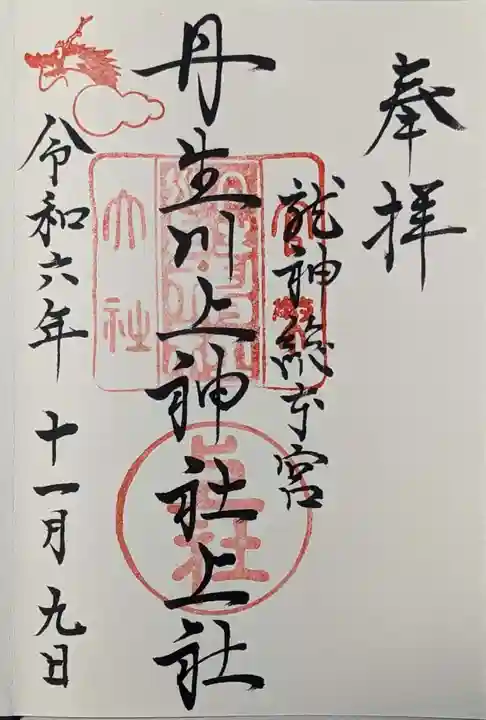 奉拝
龍神総本宮
丹生川上神社上社
令和六年十一月九日
大社
上社